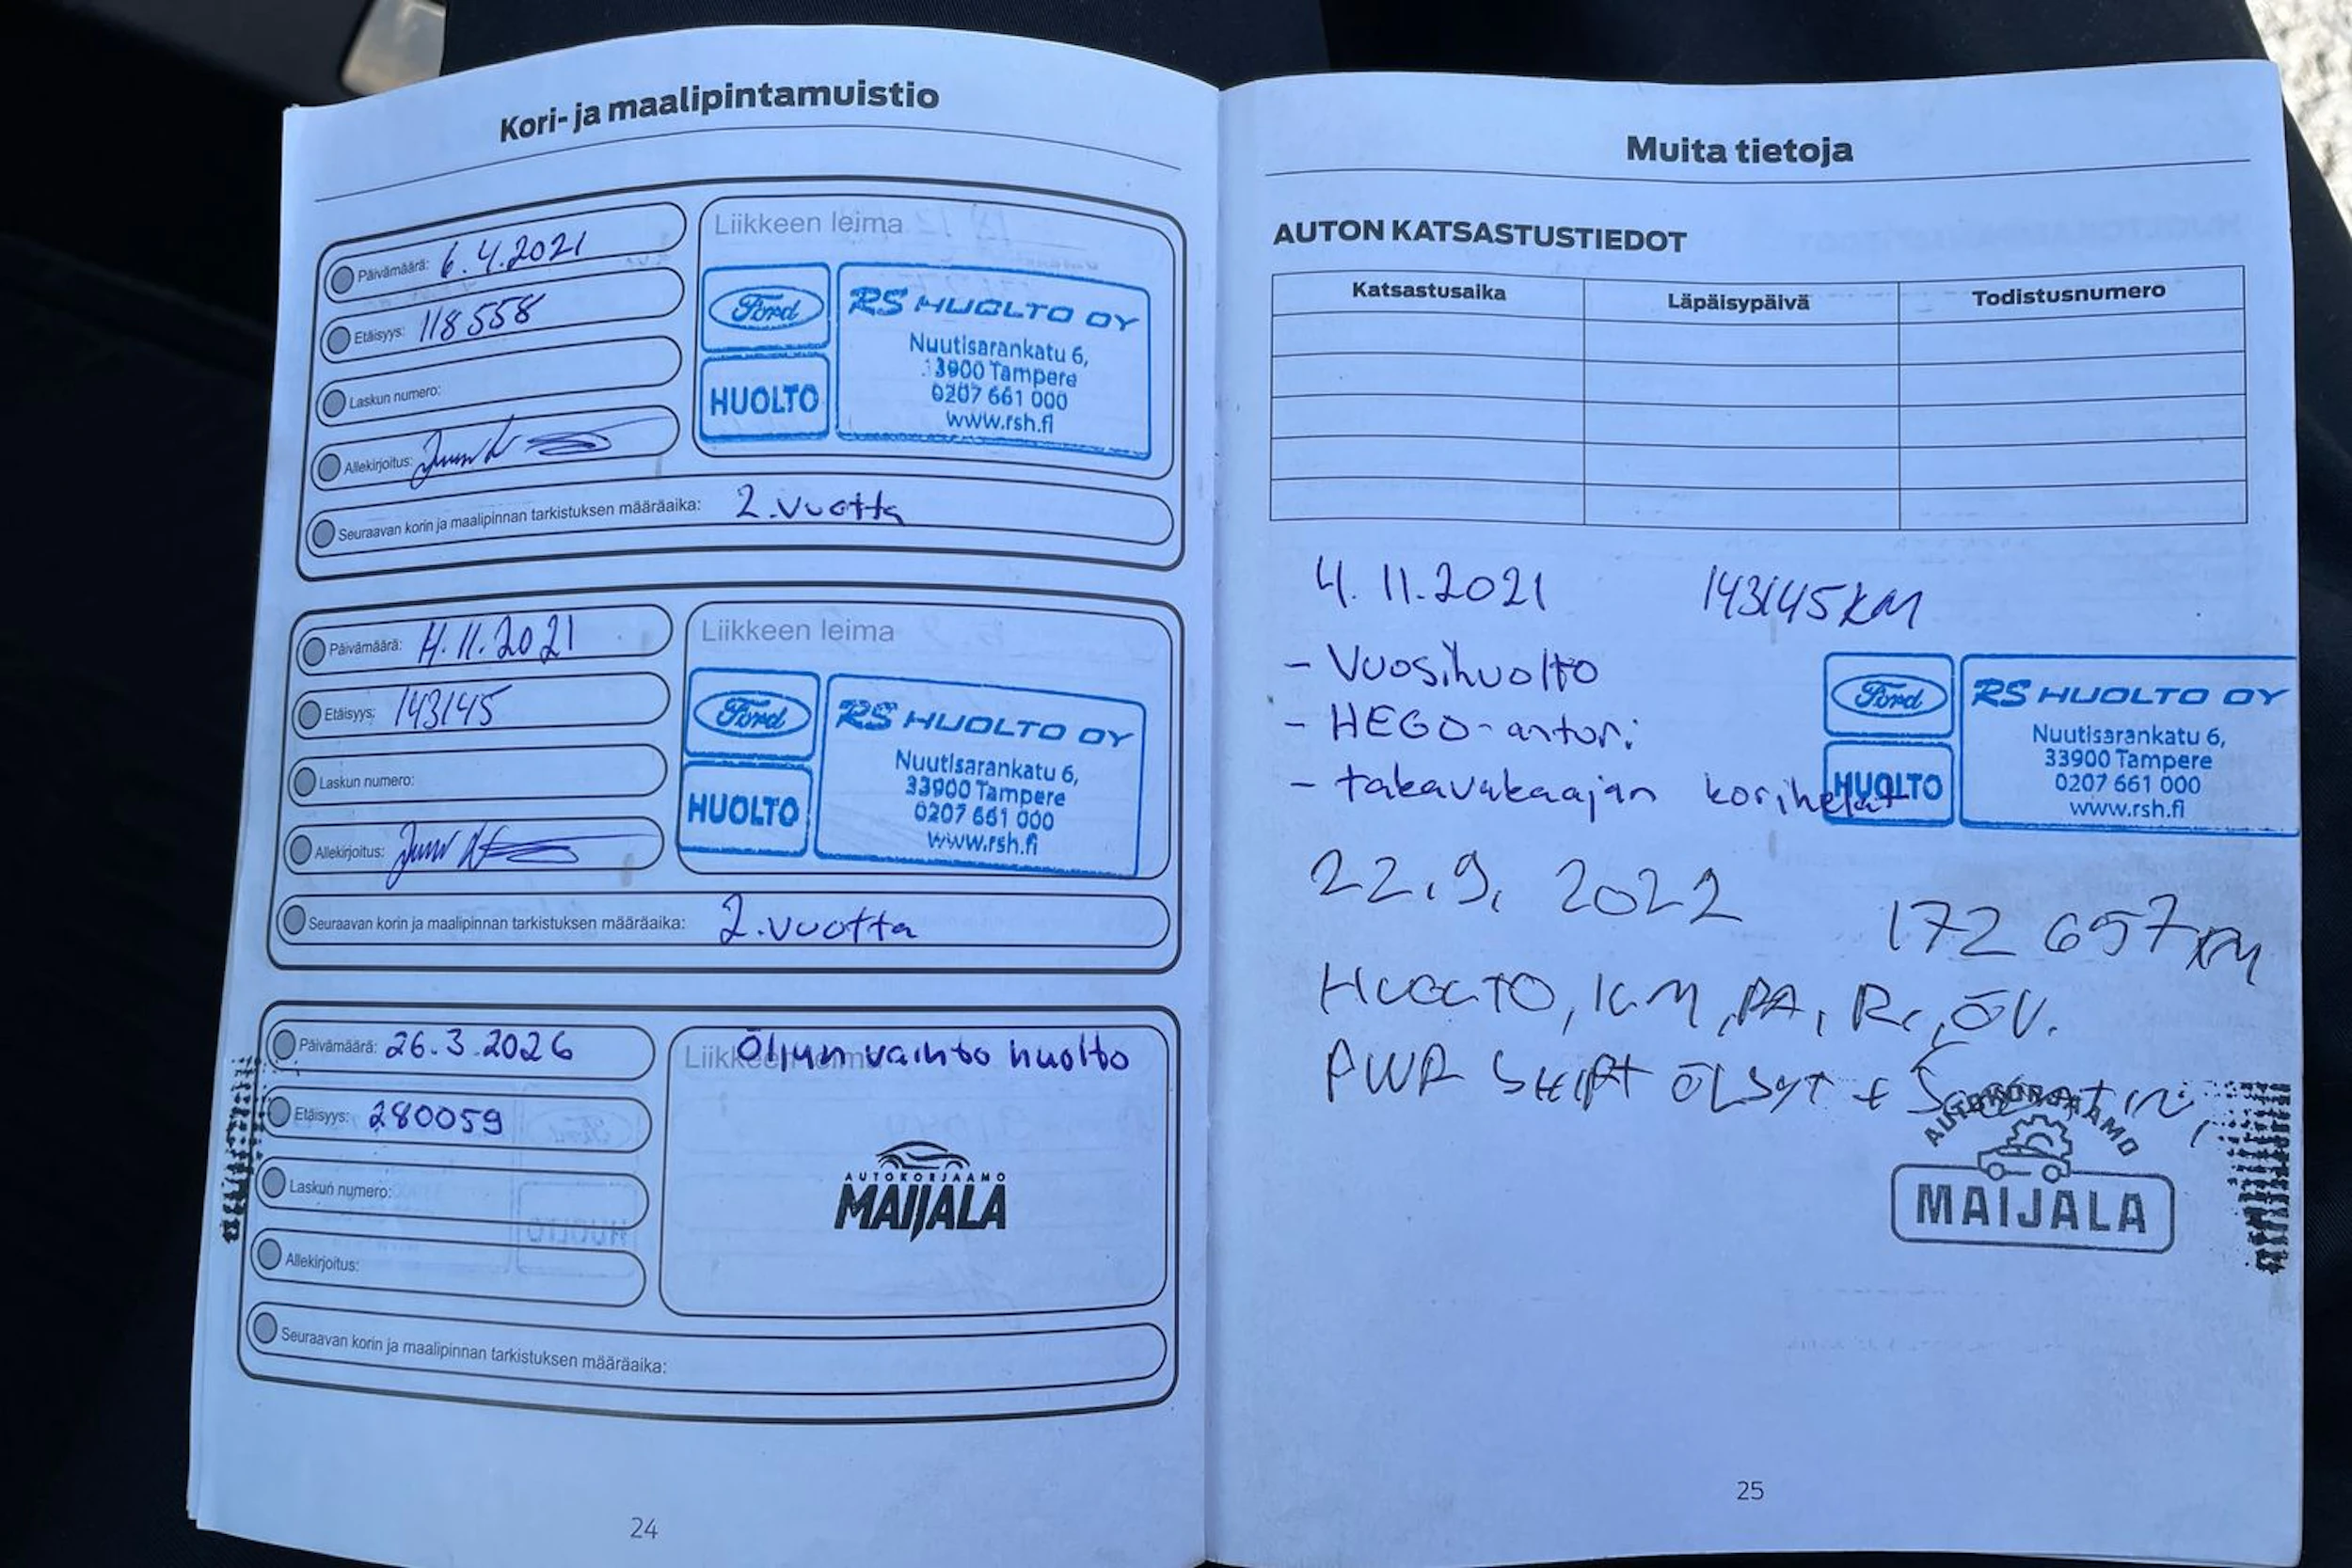 Kori- ja maalipintamuistio
Päivämäärä: 6.4.2021
Etäisyys: 118558
Laskun numero:
Allekirjoitus:
Liikkeen leima
Ford
HUOLTO
RS HUOLTO OY
Nuutisarankatu 6,
33900 Tampere
0207 661 000
www.rsh.fi
Seuraavan korin ja maalipinnan tarkistuksen määräaika: 2.vuotta
Päivämäärä: 4.11.2021
Etäisyys: 143145
Laskun numero:
Allekirjoitus:
Liikkeen leima
Ford
HUOLTO
RS HUOLTO OY
Nuutisarankatu 6,
33900 Tampere
0207 661 000
www.rsh.fi
Seuraavan korin ja maalipinnan tarkistuksen määräaika: 2.vuotta
Päivämäärä: 26.3.2026
Etäisyys: 280059
Laskun numero:
Allekirjoitus:
Liikkeen leima
Öljyn vaihto huolto
AUTOKORJAAMO
MAIJALA
Seuraavan korin ja maalipinnan tarkistuksen määräaika:
24
Muita tietoja
AUTON KATSASTUSTIEDOT
Katsastusaika Läpäisypäivä Todistusnumero
4.11.2021 143145KM
- Vuosihuolto
- HEGO-anturi
- takavakaajan korihelat
Ford
HUOLTO
RS HUOLTO OY
Nuutisarankatu 6,
33900 Tampere
0207 661 000
www.rsh.fi
22.9. 2022 172 657 KM
HUOLTO, , PA, , ÖV.
PWR SHIFT ÖLJYT +
AUTOKORJAAMO
MAIJALA
25